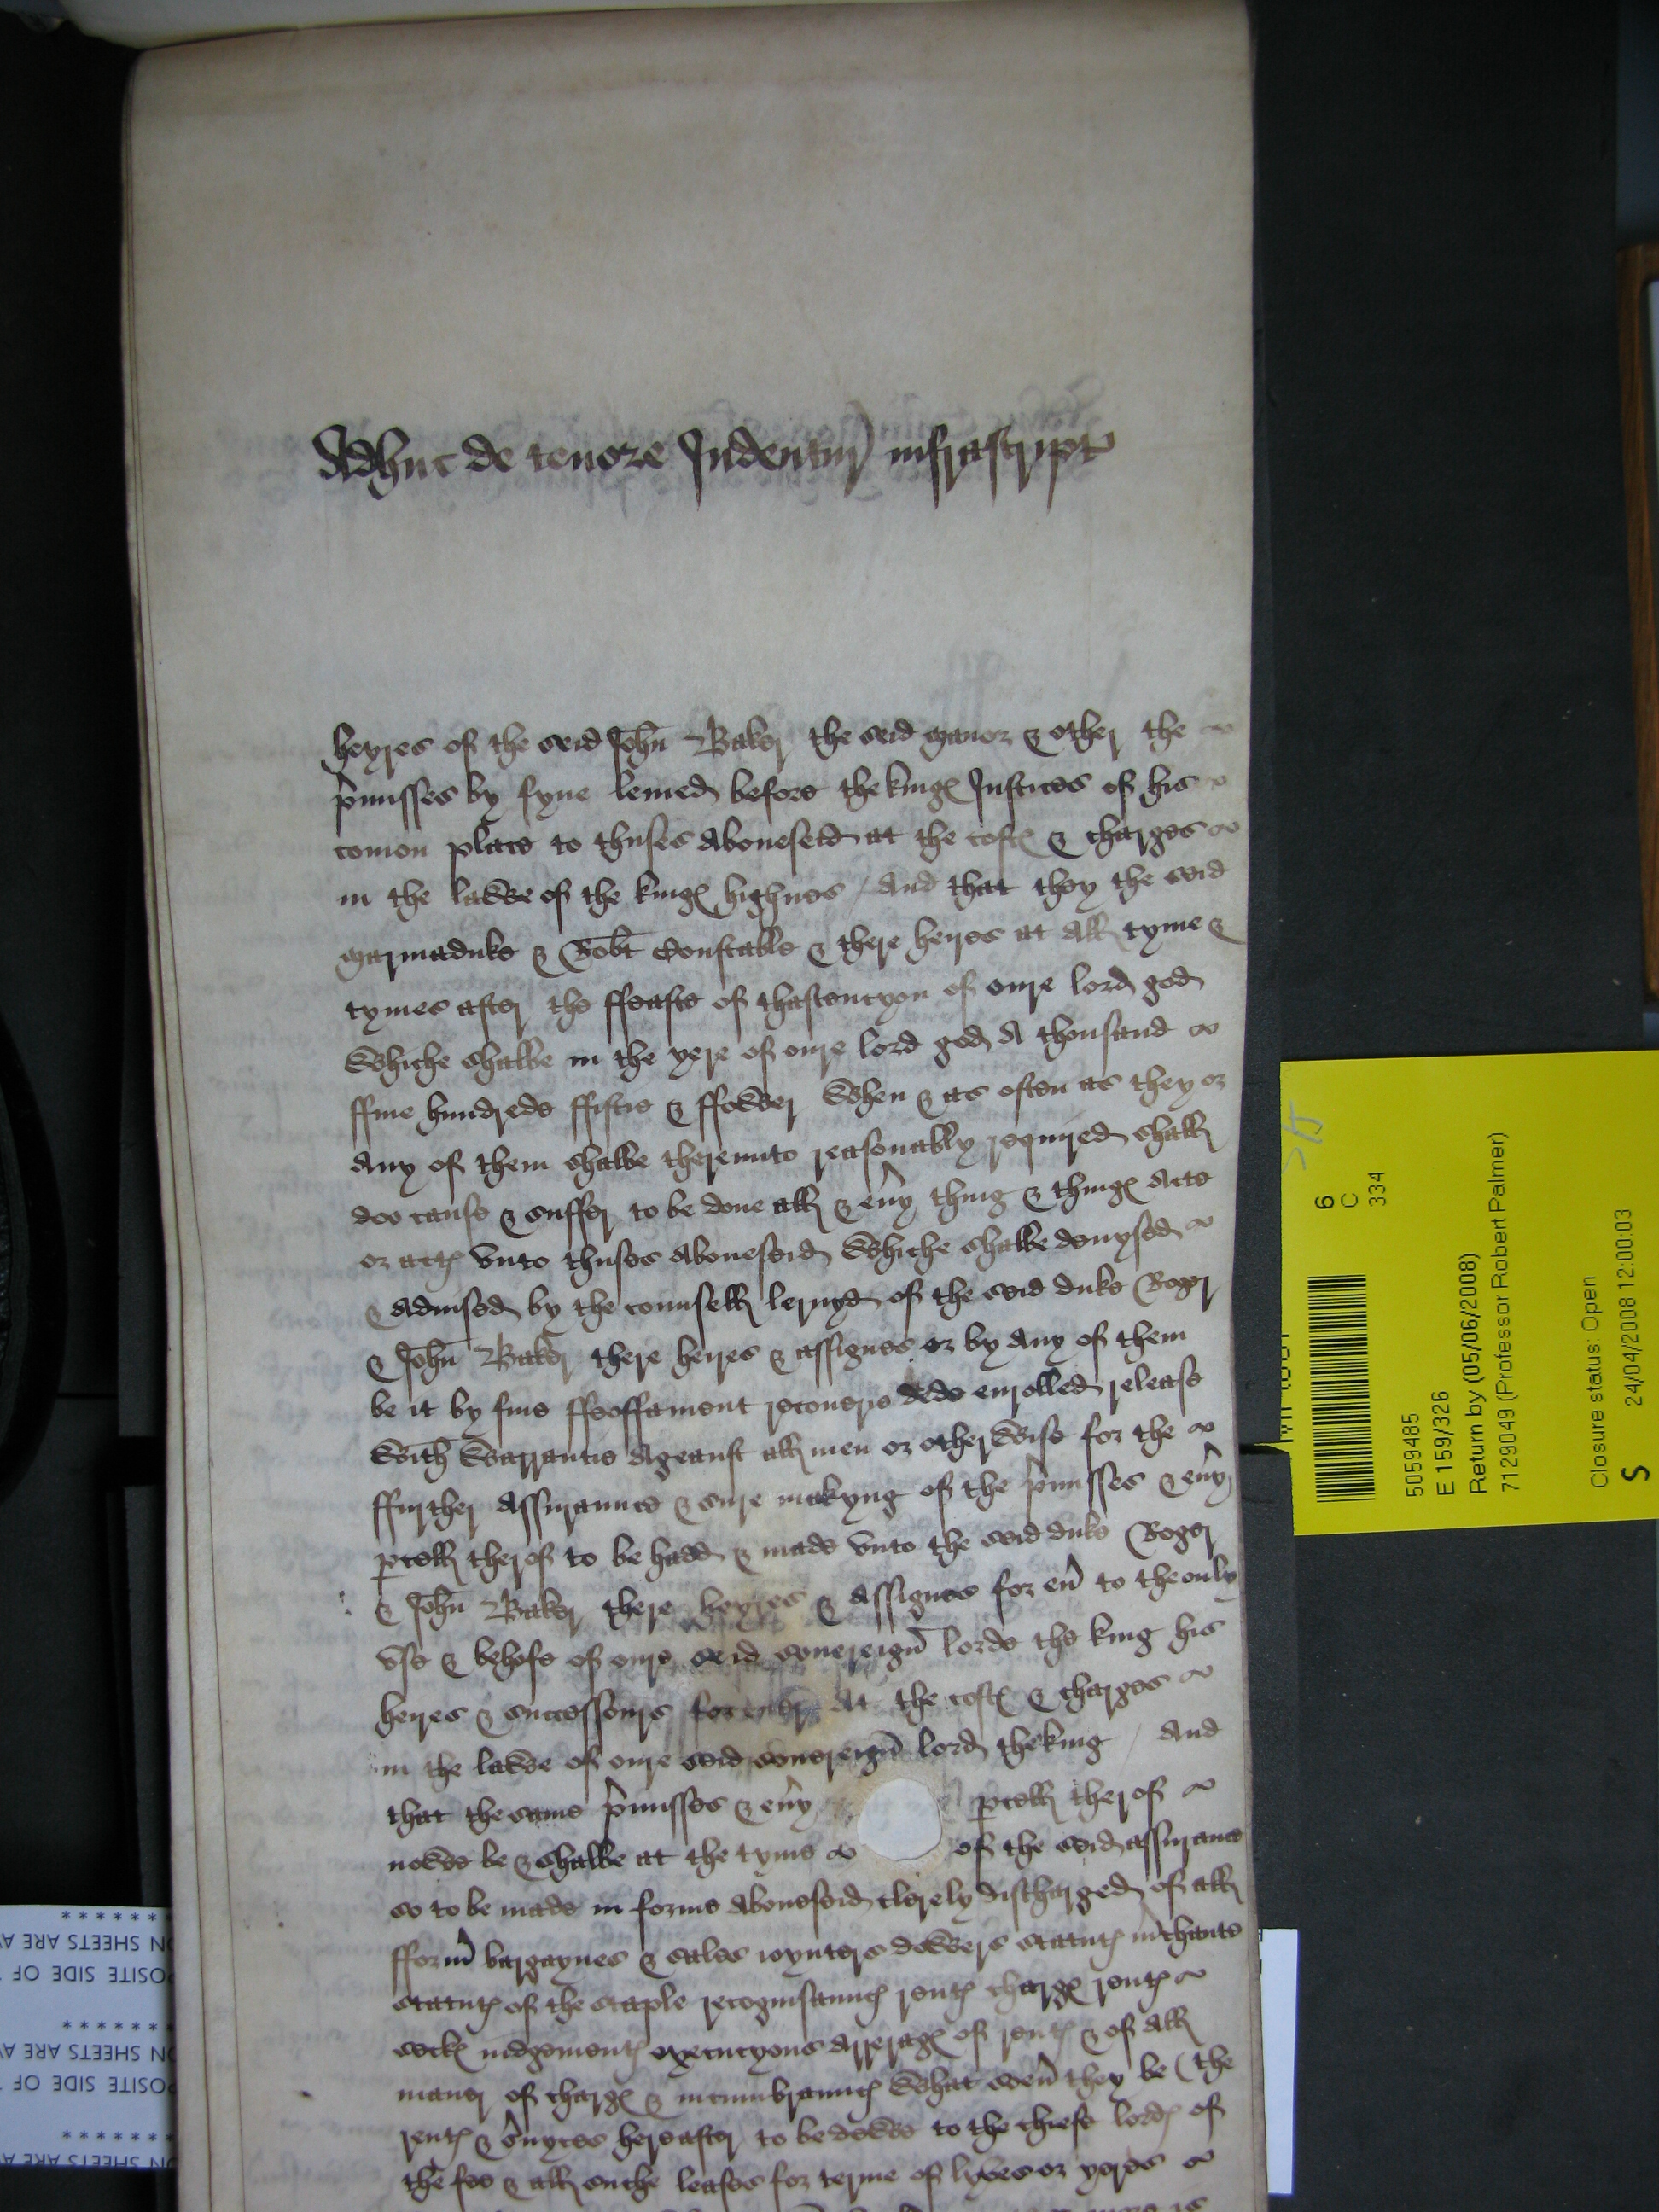 Adhuc de tenore Indentur infrascript
heyres of the seid John Baker the seid manor & other the
p'misses by fyne leuied before the kinges Justices of his
comon place to thuses aboueseid at the costes & charges
in the lawe of the kinges highnes / And that they the seid
Marmaduke & Robt Constable & there heires at all tyme &
tymes after the ffeaste of thastencyon of oure lord god
Whiche shalbe in the yere of oure lord god A thousand
ffiue hundrede ffiftie & ffower When & as often as they or
any of them shalbe therunto reasonably required shall
doo cause & suffer to be done all & eu'y thing & thinges acte
or actes vnto thuses aboueseid Whiche shalbe deuysed
& aduised by the counsell lernyd of the seid duke Roger
& John Baker there heires & assignes or by any of them
be it by fine ffeoffament recouerie dede enrolled release
With Warrantie ageanst all men or otherwise for the
ffurther assuraunce & sure makyng of the p'misses & eu'y
p'cell therof to be hadd & made vnto the seid duke Roger
& John Baker there heyres & assignes for eu' to the only
vse & behofe of oure seid souereign lorde the king his
heires & successours for euer At the costes & charges
in the lawe of oure seid souereign lord the king / And
that the same p'misses & eu'y p'cell therof
nowe be & shalbe at the tyme of the seid assurance
so to be made in forme aboueseid clerely discharged of all
fform' bargaynes & sales ioynters dowers statutes m'chante
statutes of the staple recognisaunces rentes charges rentes
secke iudgementes execucyons arrerages of rentes & of all
maner of charges & incumbraunces What soeu' they be (the
rentes & s'uyces hereafter to be dewe to the chiefe lordes of
the fee & all suche leases for terme of lyves or yeres
6
C
334
5059485
E 159/326
Return by (05/06/2008)
7129049 (Professor Robert Palmer)
Closure status: Open
S 24/04/2008 12:00:03